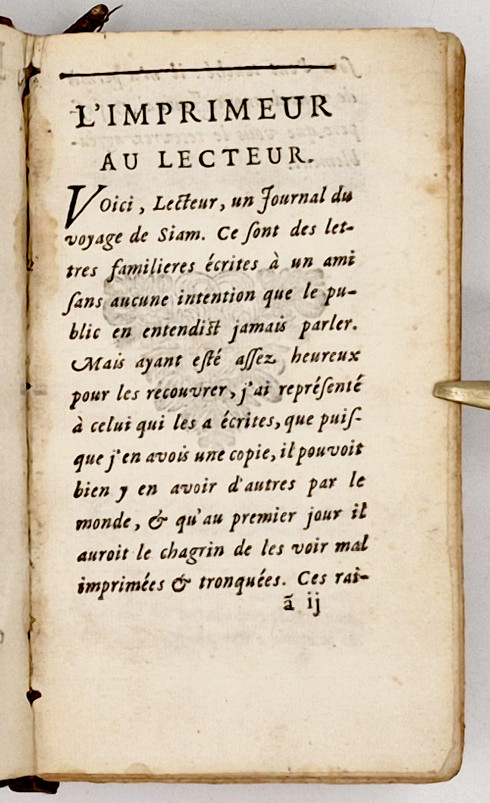 L'IMPRIMEUR
AU LECTEUR.
Voici, Lecteur, un Journal du
voyage de Siam. Ce ſont des let-
tres familieres écrites à un ami
ſans aucune intention que le pu-
blic en entendiſt jamais parler.
Mais ayant eſté aſſez heureux
pour les recouvrer, j'ai repréſenté
à celui qui les a écrites, que puiſ-
que j'en avois une copie, il pouvoit
bien y en avoir d'autres par le
monde, & qu'au premier jour il
auroit le chagrin de les voir mal
imprimées & tronquées. Ces rai-
ã ij